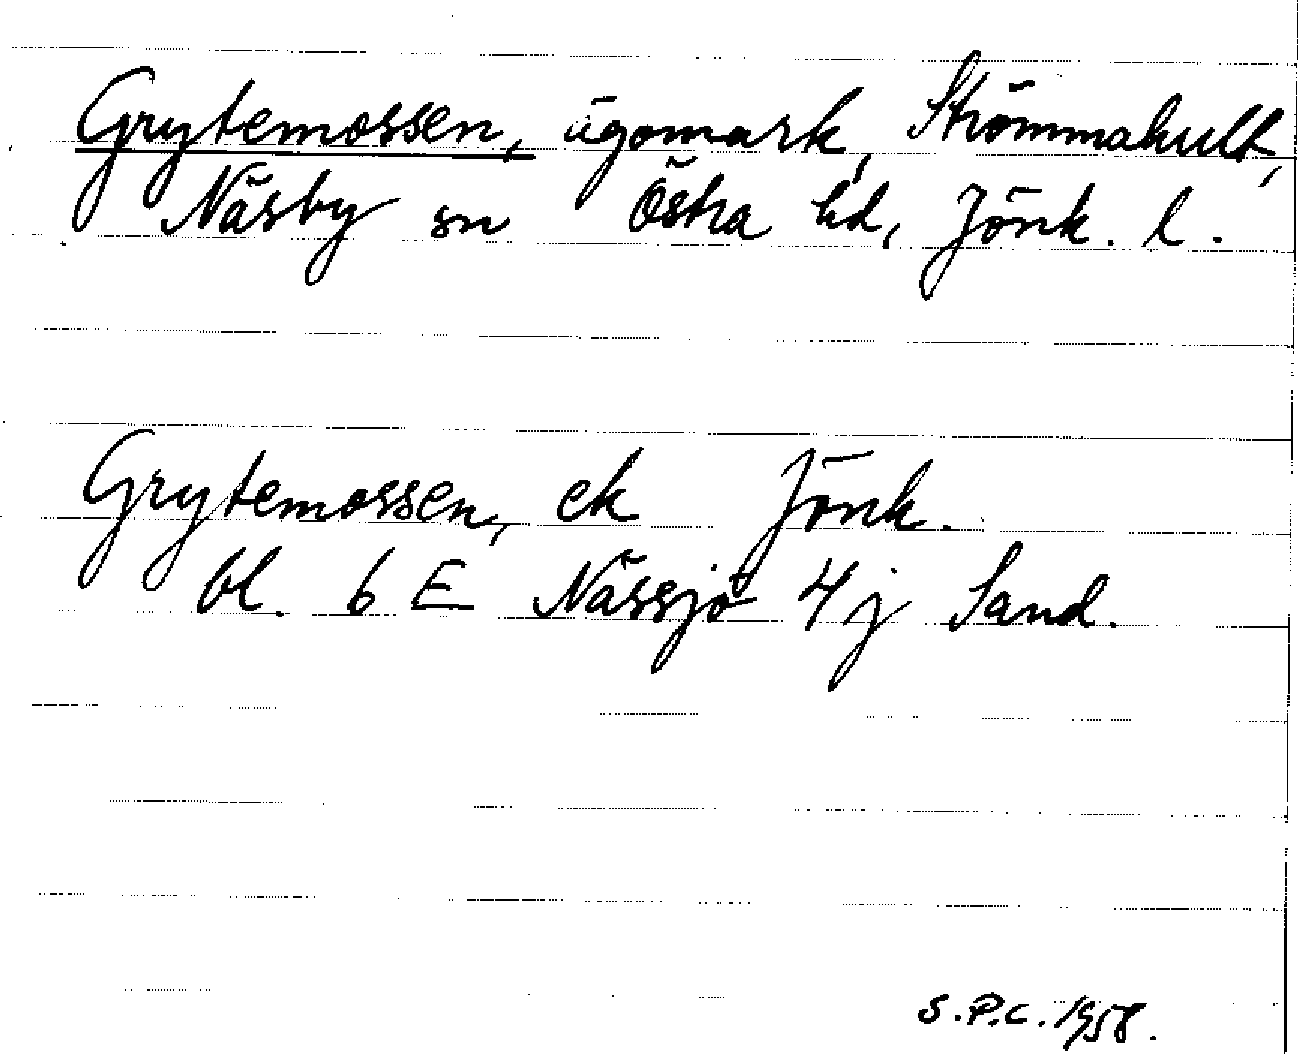 Grytemossen, ägomark, Strömmahult,
Näsby sn Östra hd, Jönk. l.
Grytemossen, ek Jönk.
bl. 6 E Nässjö 4 j Sand.
S.P.C. 1958.